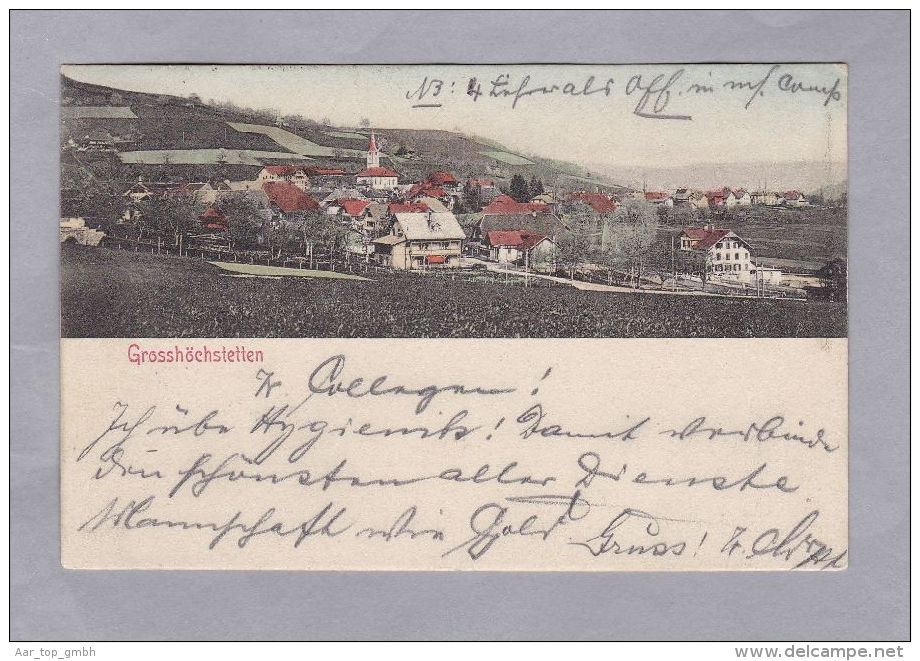 NB: 4 Lehrer als Off. in m/. Comp
Grosshöchstetten
Collegen!
Ich übe Hygienik! Damit verbinde
den schönsten aller Dienste
Mannschaft wie Gold
Gruss!
Aar_top_gmbh
www.delcampe.net